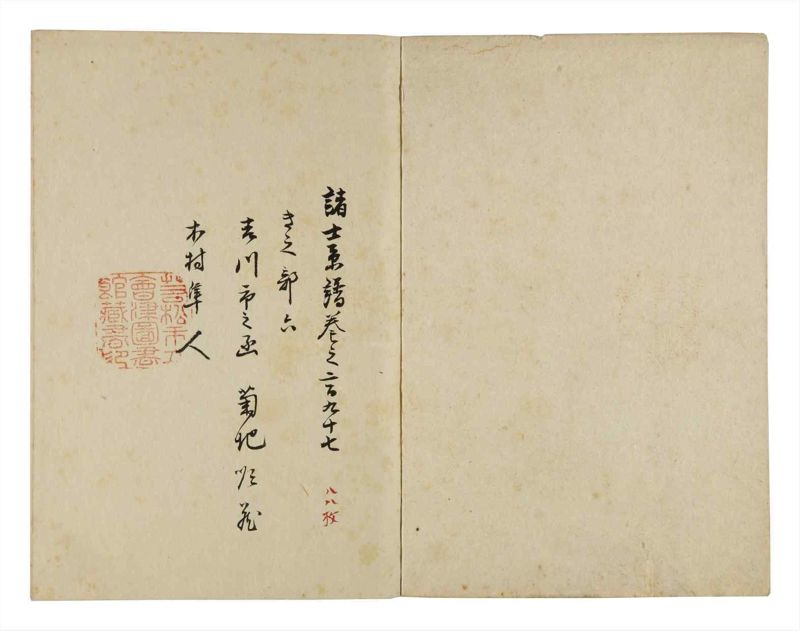 諸士系譜巻之二百九十七
八八枚
き之部六
吉川市之丞 菊地
木村隼人
若松市立
會津圖書
館藏書印